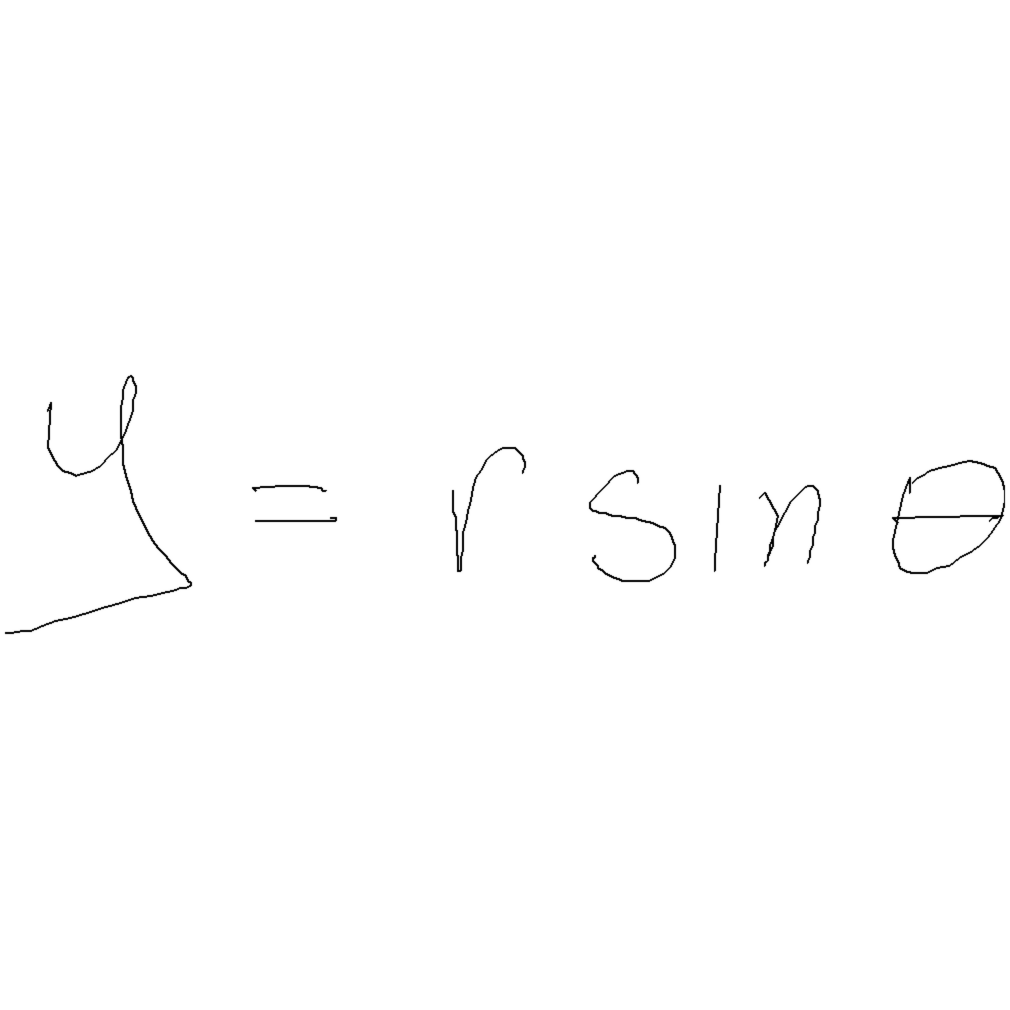 y = r sin θ